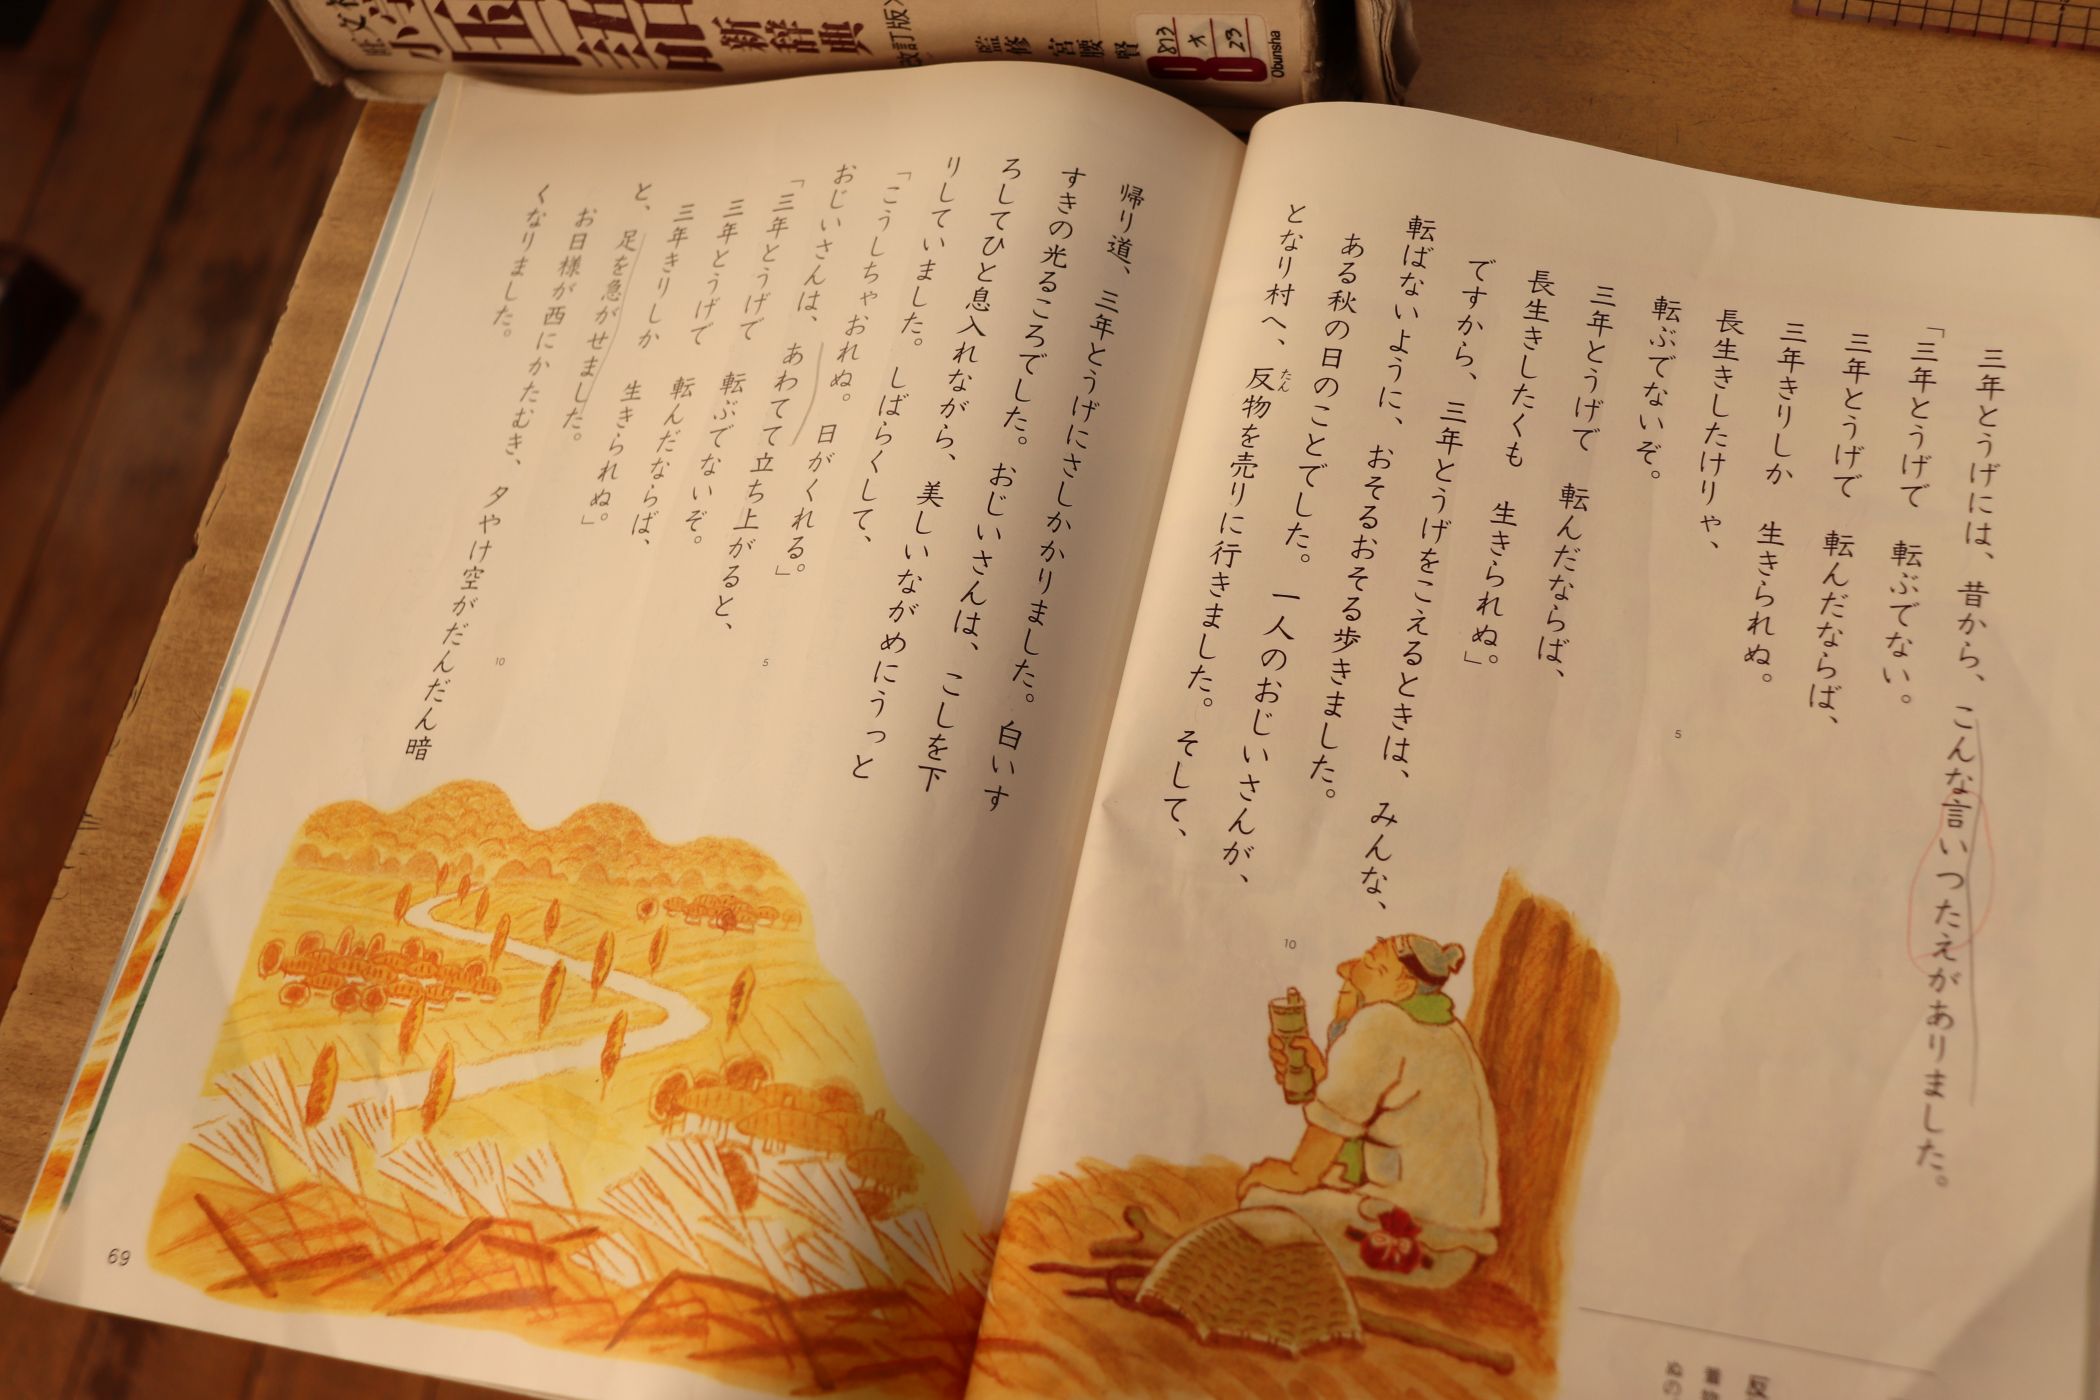 小学国語新辞典
改訂版
監修
宮腰賢
813
オ
23
Obunsha
三年とうげには、昔から、こんな言いつたえがありました。
「三年とうげで 転ぶでない。
三年とうげで 転んだならば、
三年きりしか 生きられぬ。
長生きしたけりゃ、
転ぶでないぞ。
三年とうげで 転んだならば、
長生きしたくも 生きられぬ。」
ですから、三年とうげをこえるときは、みんな、
転ばないように、おそるおそる歩きました。
ある秋の日のことでした。一人のおじいさんが、
となり村へ、反物を売りに行きました。そして、
たん
5
10
反
ぬの
帰り道、三年とうげにさしかかりました。白いす
すきの光るころでした。おじいさんは、こしを下
ろしてひと息入れながら、美しいながめにうっと
りしていました。しばらくして、
「こうしちゃおれぬ。日がくれる。」
おじいさんは、あわてて立ち上がると、
「三年とうげで 転ぶでないぞ。
三年とうげで 転んだならば、
三年きりしか 生きられぬ。」
と、足を急がせました。
お日様が西にかたむき、夕やけ空がだんだん暗
くなりました。
5
10
69